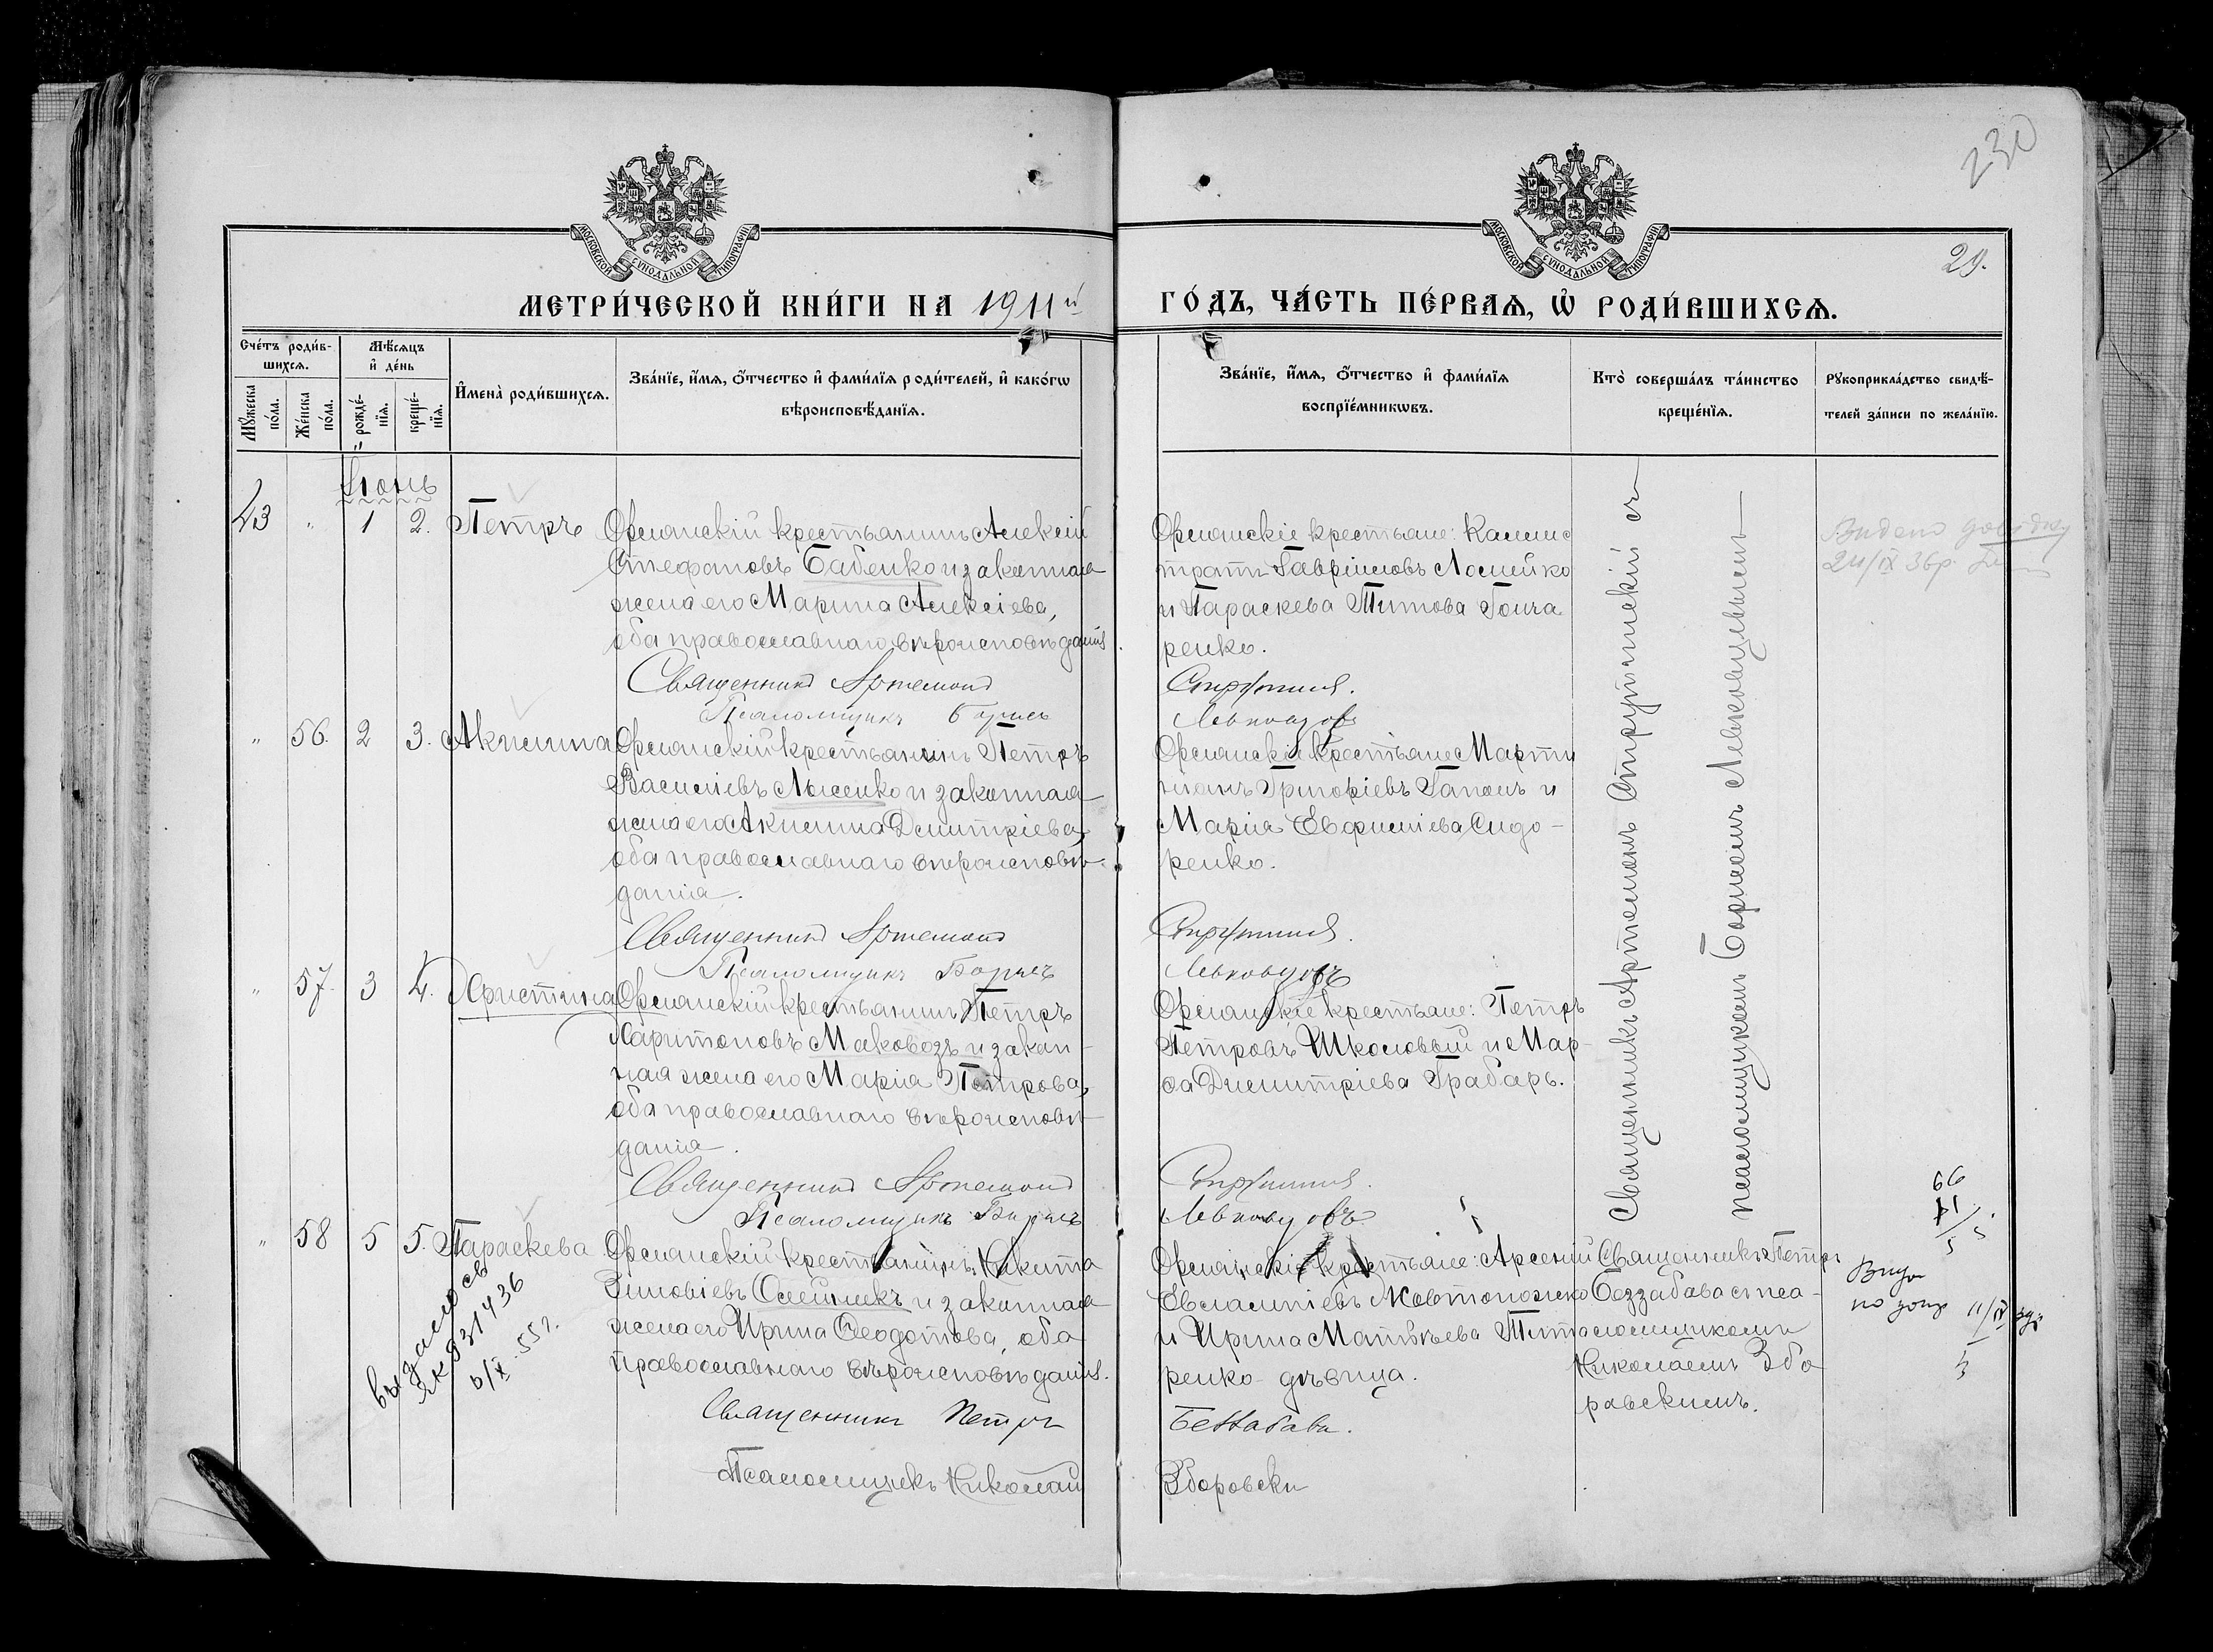 230
29.
МОСКОВСКОЙ СѴНОДАЛЬНОЙ ТИПОГРАФІИ
МОСКОВСКОЙ СѴНОДАЛЬНОЙ ТИПОГРАФІИ
МЕТРИ́ЧЕСКОЙ КНИ́ГИ НА 1911й ГО́ДЪ, ЧА́СТЬ ПЕ́РВАѦ, Ѽ РОДИ́ВШИХСѦ.
Сче́тъ роди́в-
шихсѧ.
Мꙋ́жеска
по́ла.
Же́нска
по́ла.
Мѣ́сѧцъ
и҆ де́нь
рожде́-
нїѧ.
креще́-
нїѧ.
И҆мена̀ роди́вшихсѧ.
Зва́нїе, и҆́мѧ, ѻ҆́тчество и҆ фами́лїѧ роди́телей, и҆ како́гѡ
вѣроисповѣ́данїѧ.
Зва́нїе, и҆́мѧ, ѻ҆́тчество и҆ фами́лїѧ
воспрїе́мникѡвъ.
Кто̀ соверша́лъ та́инство
креще́нїѧ.
Рꙋкоприкла́дство свидѣ́-
телей за́писи по жела́нїю.
Іюнь
43 " 1 2. Петръ
Орлянскій крестьянинъ Алексій
Стефановъ Бабенко и законная
жена его Марина Алексіева,
оба православнаго вѣроисповѣданія.
Священникъ Артемонъ
Псаломщикъ Борисъ
Орлянскіе крестьяне: Каллис
тратъ Гавріиловъ Ломейко
и Параскева Титова Гонча
ренко.
Струтинскій.
Левковцовъ
Видано довідку
24/IX 36р.
" 56. 2 3. Акилина
Орлянскій крестьянинъ Петръ
Василіевъ Лысенко и законная
жена его Акилина Димитріева,
оба православнаго вѣроисповѣ-
данія.
Священникъ Артемонъ
Псаломщикъ Борисъ
Орлянскіе крестьяне Марти
ніанъ Григоріевъ Гапонъ и
Марія Евфиміева Сидо-
ренко.
Струтинскій.
Левковцовъ
" 57. 3 4. Христина
Орлянскій крестьянинъ Петръ
Харитоновъ Маковозъ и закон-
ная жена его Марія Петрова,
оба православнаго вѣроисповѣ-
данія.
Священникъ Артемонъ
Псаломщикъ Борисъ
Орлянскіе крестьяне: Петръ
Петровъ Школовый и Мар-
ѳа Димитріева Грабарь.
Струтинскій.
Левковцовъ
Священникъ Артемонъ Струтинскій съ
псаломщикомъ Борисомъ Левковцевымъ
" 58 5 5. Параскева
выдалось
ЯК 931436
6/X 55 г.
Орлянскій крестьянинъ Никита
Зиновіевъ Олейникъ и законная
жена его Ирина Ѳеодотова, оба
православнаго вѣроисповѣданія.
Священникъ Петръ
Псаломщикъ Николай
Орлянскіе крестьяне: Арсеній
Евлампіевъ Жовтоножко
и Ирина Матвѣева Тита
ренко дѣвица.
Беззабава.
Зборовски
Священникъ Петръ
Беззабава с пса-
ломщикомъ
Николаемъ Збо
равскимъ.
66